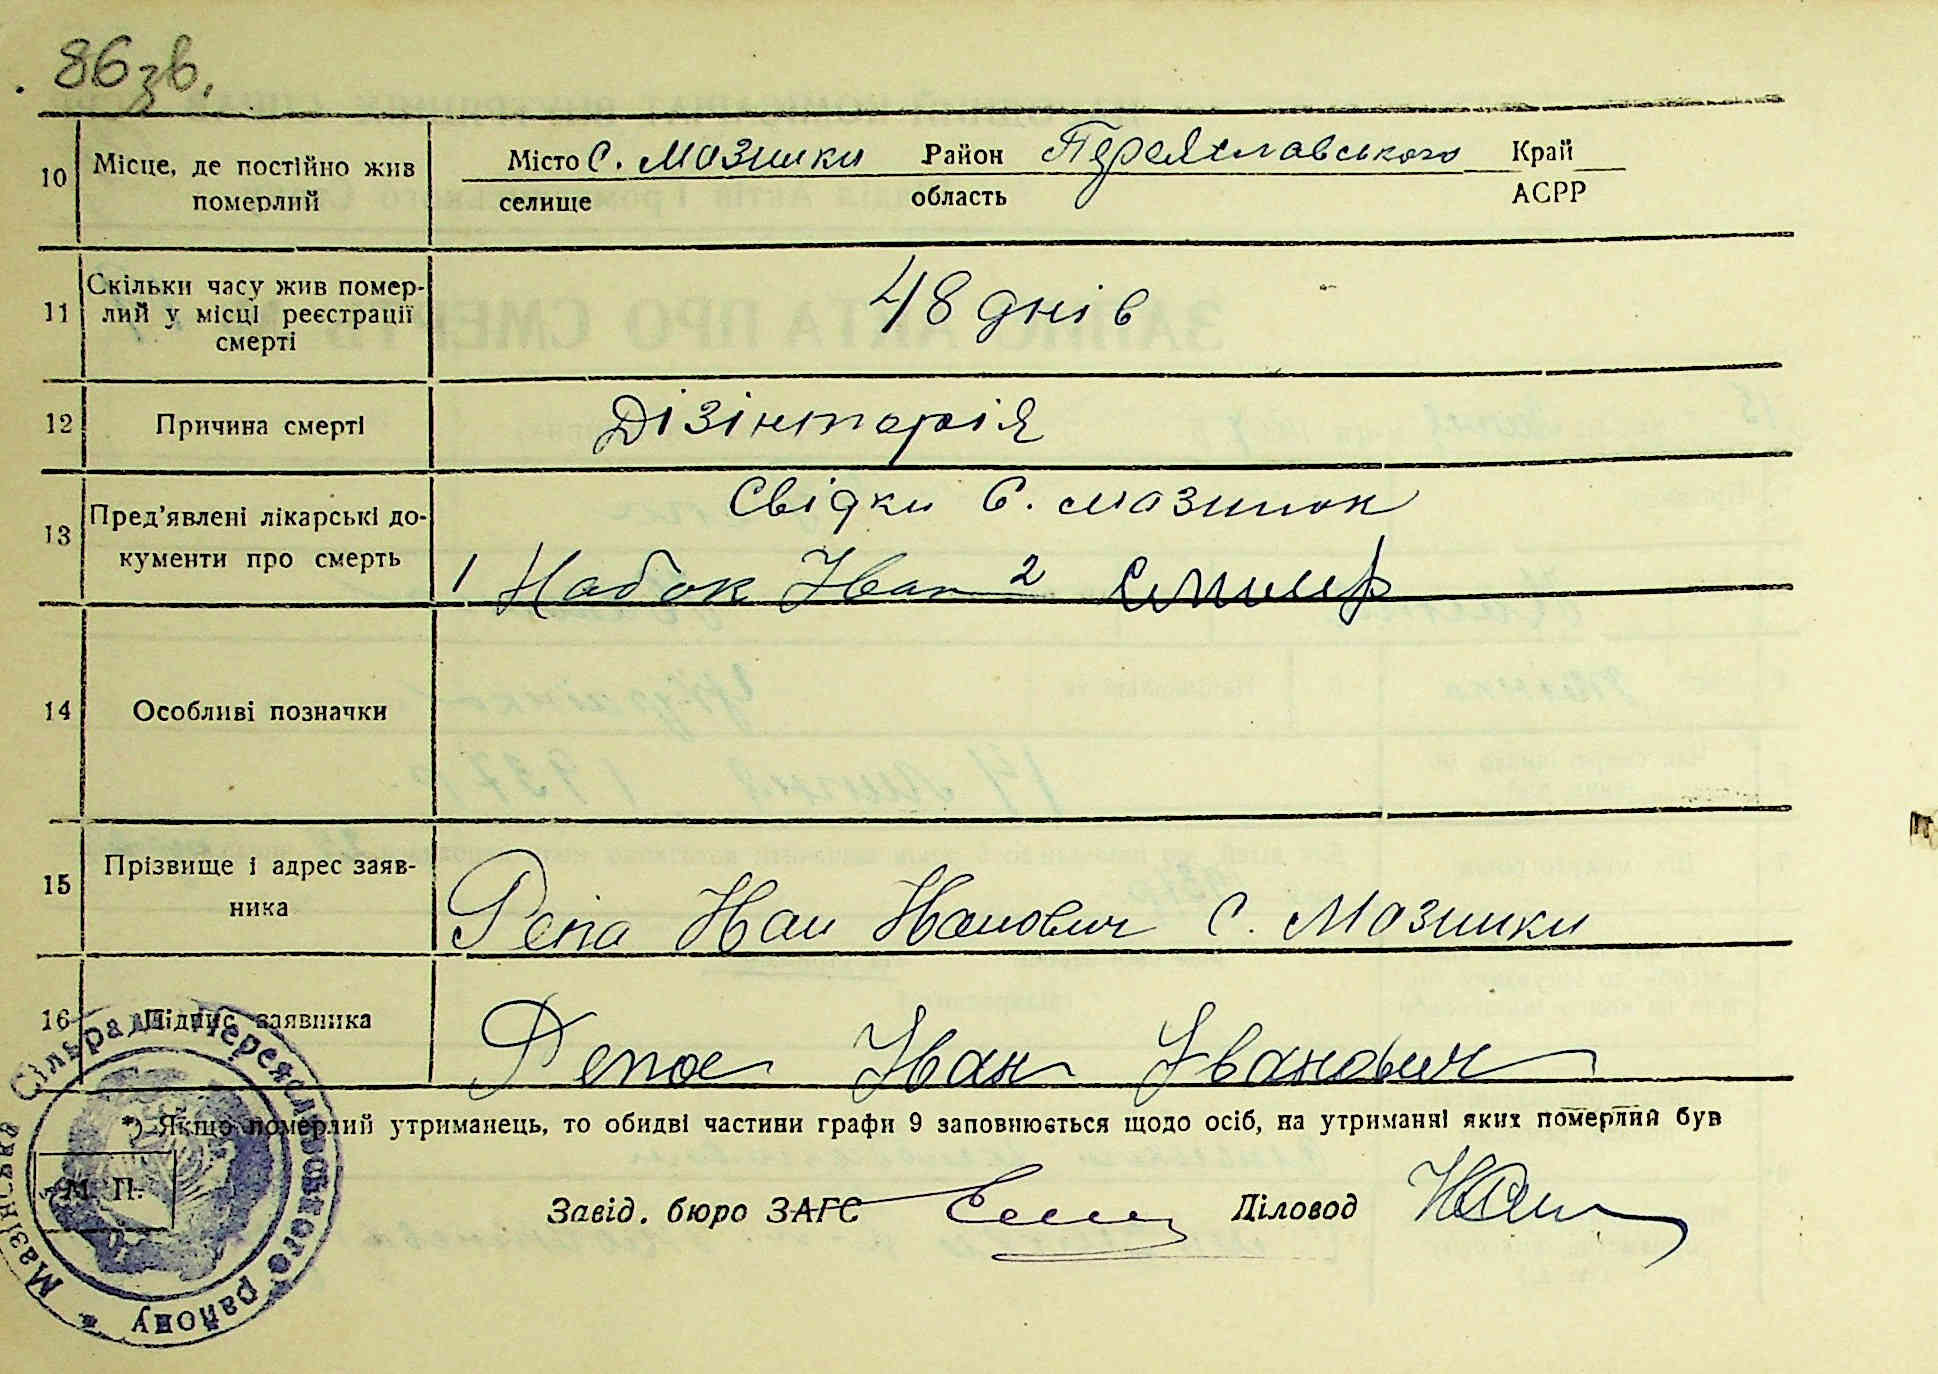 86зв.
10 Місце, де постійно жив померлий
Місто с. Мазинки Район Переяславського Край
селище область АСРР
11 Скільки часу жив помер-
лий у місці реєстрації
смерті
48 днів
12 Причина смерті Дізінтарія
13 Пред'явлені лікарські до-
кументи про смерть
Свідки с. Мазинок
1 Набок Іван 2
14 Особливі позначки
15 Прізвище і адрес заяв-
ника
Репа Іван Іванович с. Мазинки
16 Підпис заявника Репа Іван Іванович
*) Якщо померлий утриманець, то обидві частини графи 9 заповнюється щодо осіб, на утриманні яких померлий був
М. П.
Завід. бюро ЗАГС Діловод
Мазінська Сільрада Переяславського району *